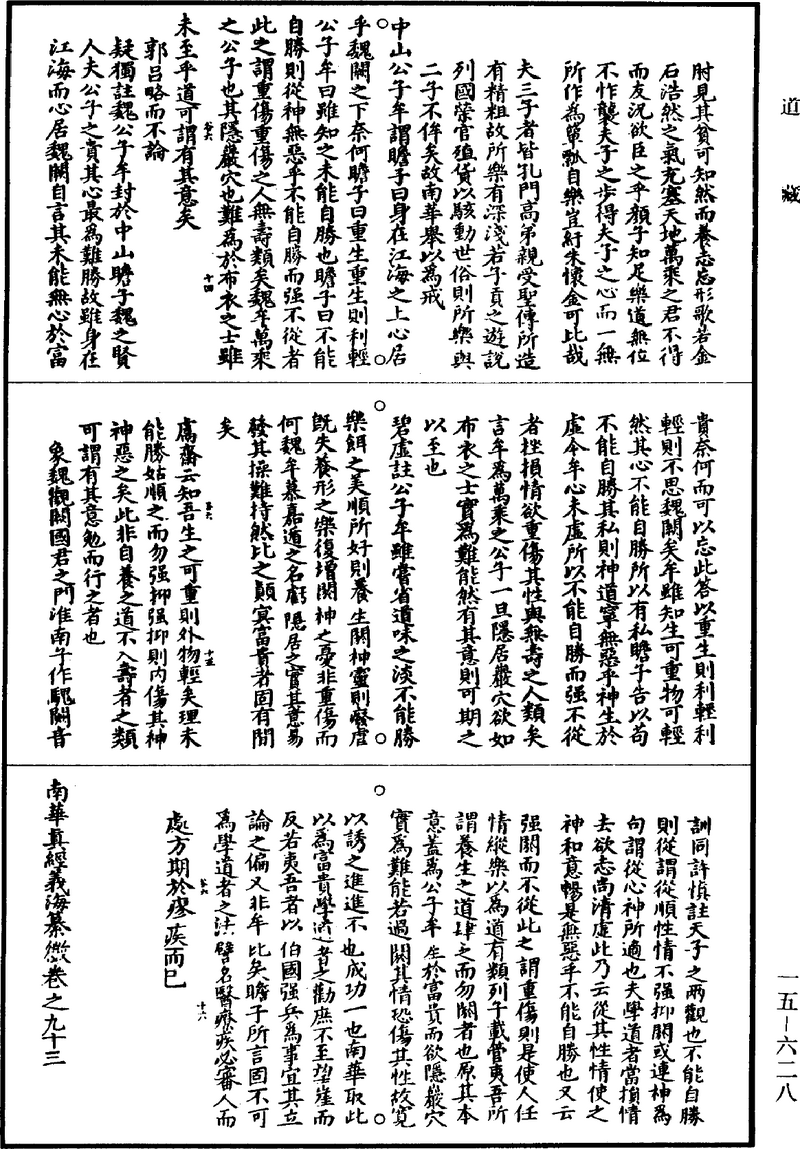 道藏
肘見其貧可知然而養志忘形歌若金
石浩然之氣充塞天地萬乘之君不得
而友況欲臣之乎顏子知足樂道無位
不怍襲夫子之步得夫子之心而一無
所作為簞瓢自樂豈紆朱懷金可比哉
夫三子者皆孔門高弟親受聖傳所造
有精粗故所樂有深淺若子貢之遊說
列國榮官殖貨以駭動世俗則所樂與
二子不侔矣故南華舉以為戒
中山公子牟謂瞻子曰身在江海之上心居
乎魏闕之下奈何瞻子曰重生重生則利輕
公子牟曰雖知之未能自勝也瞻子曰不能
自勝則從神無惡乎不能自勝而强不從者
此之謂重傷重傷之人無壽類矣魏牟萬乘
之公子也其隱巖穴也難為於布衣之士雖
十四
未至乎道可謂有其意矣
郭呂略而不論
疑獨註魏公子牟封於中山瞻子魏之賢
人夫公子之貴其心最為難勝故雖身在
江海而心居魏闕自言其未能無心於富
貴奈何而可以忘此答以重生則利輕利
輕則不思魏闕矣牟雖知生可重物可輕
然其心不能自勝所以有私瞻子告以苟
不能自勝其私則神道寧無惡乎神生於
虛今牟心未虛所以不能自勝而强不從
者挫損情欲重傷其性與無壽之人類矣
言牟為萬乘之公子一旦隱居巖穴欲如
布衣之士實為難能然有其意則可期之
以至也
碧虛註公子牟雖嘗省道味之淡不能勝
樂餌之美順所好則養生闕神靈則癈虐
既失養形之樂復增闕神之憂非重傷而
何魏牟慕嘉遁之名虧隱居之實其意易
發其操難持然比之顛冥富貴者固有間
矣
鬳齋云知吾生之可重則外物輕矣理未
十五
能勝姑順之而勿强抑强抑則內傷其神
神惡之矣此非自養之道不入壽者之類
可謂有其意勉而行之者也
象魏觀闕國君之門淮南子作魏闕音
訓同許慎註天子之兩觀也不能自勝
則從謂從順性情不强抑闕或連神為
句謂從心神所適也夫學道者當損情
去欲志尚清虛此乃云從其性情使之
神和意暢是無惡乎不能自勝也又云
强闕而不從此之謂重傷則是使人任
情縱樂以為道有類列子載管夷吾所
謂養生之道肆之而勿闕者也原其本
意蓋為公子牟生於富貴而欲隱巖穴
實為難能若過闕其情恐傷其性故寬
以誘之進進不也成功一也南華取此
以為富貴學道者之勸庶不至望崖而
反若夷吾者以伯國强兵為事宜其立
論之偏又非牟比矣瞻子所言固不可
為學道者之法譬名醫療疾必審人而
十六
處方期於瘳疾而已
南華真經義海纂微卷之九十三
一五—六二八